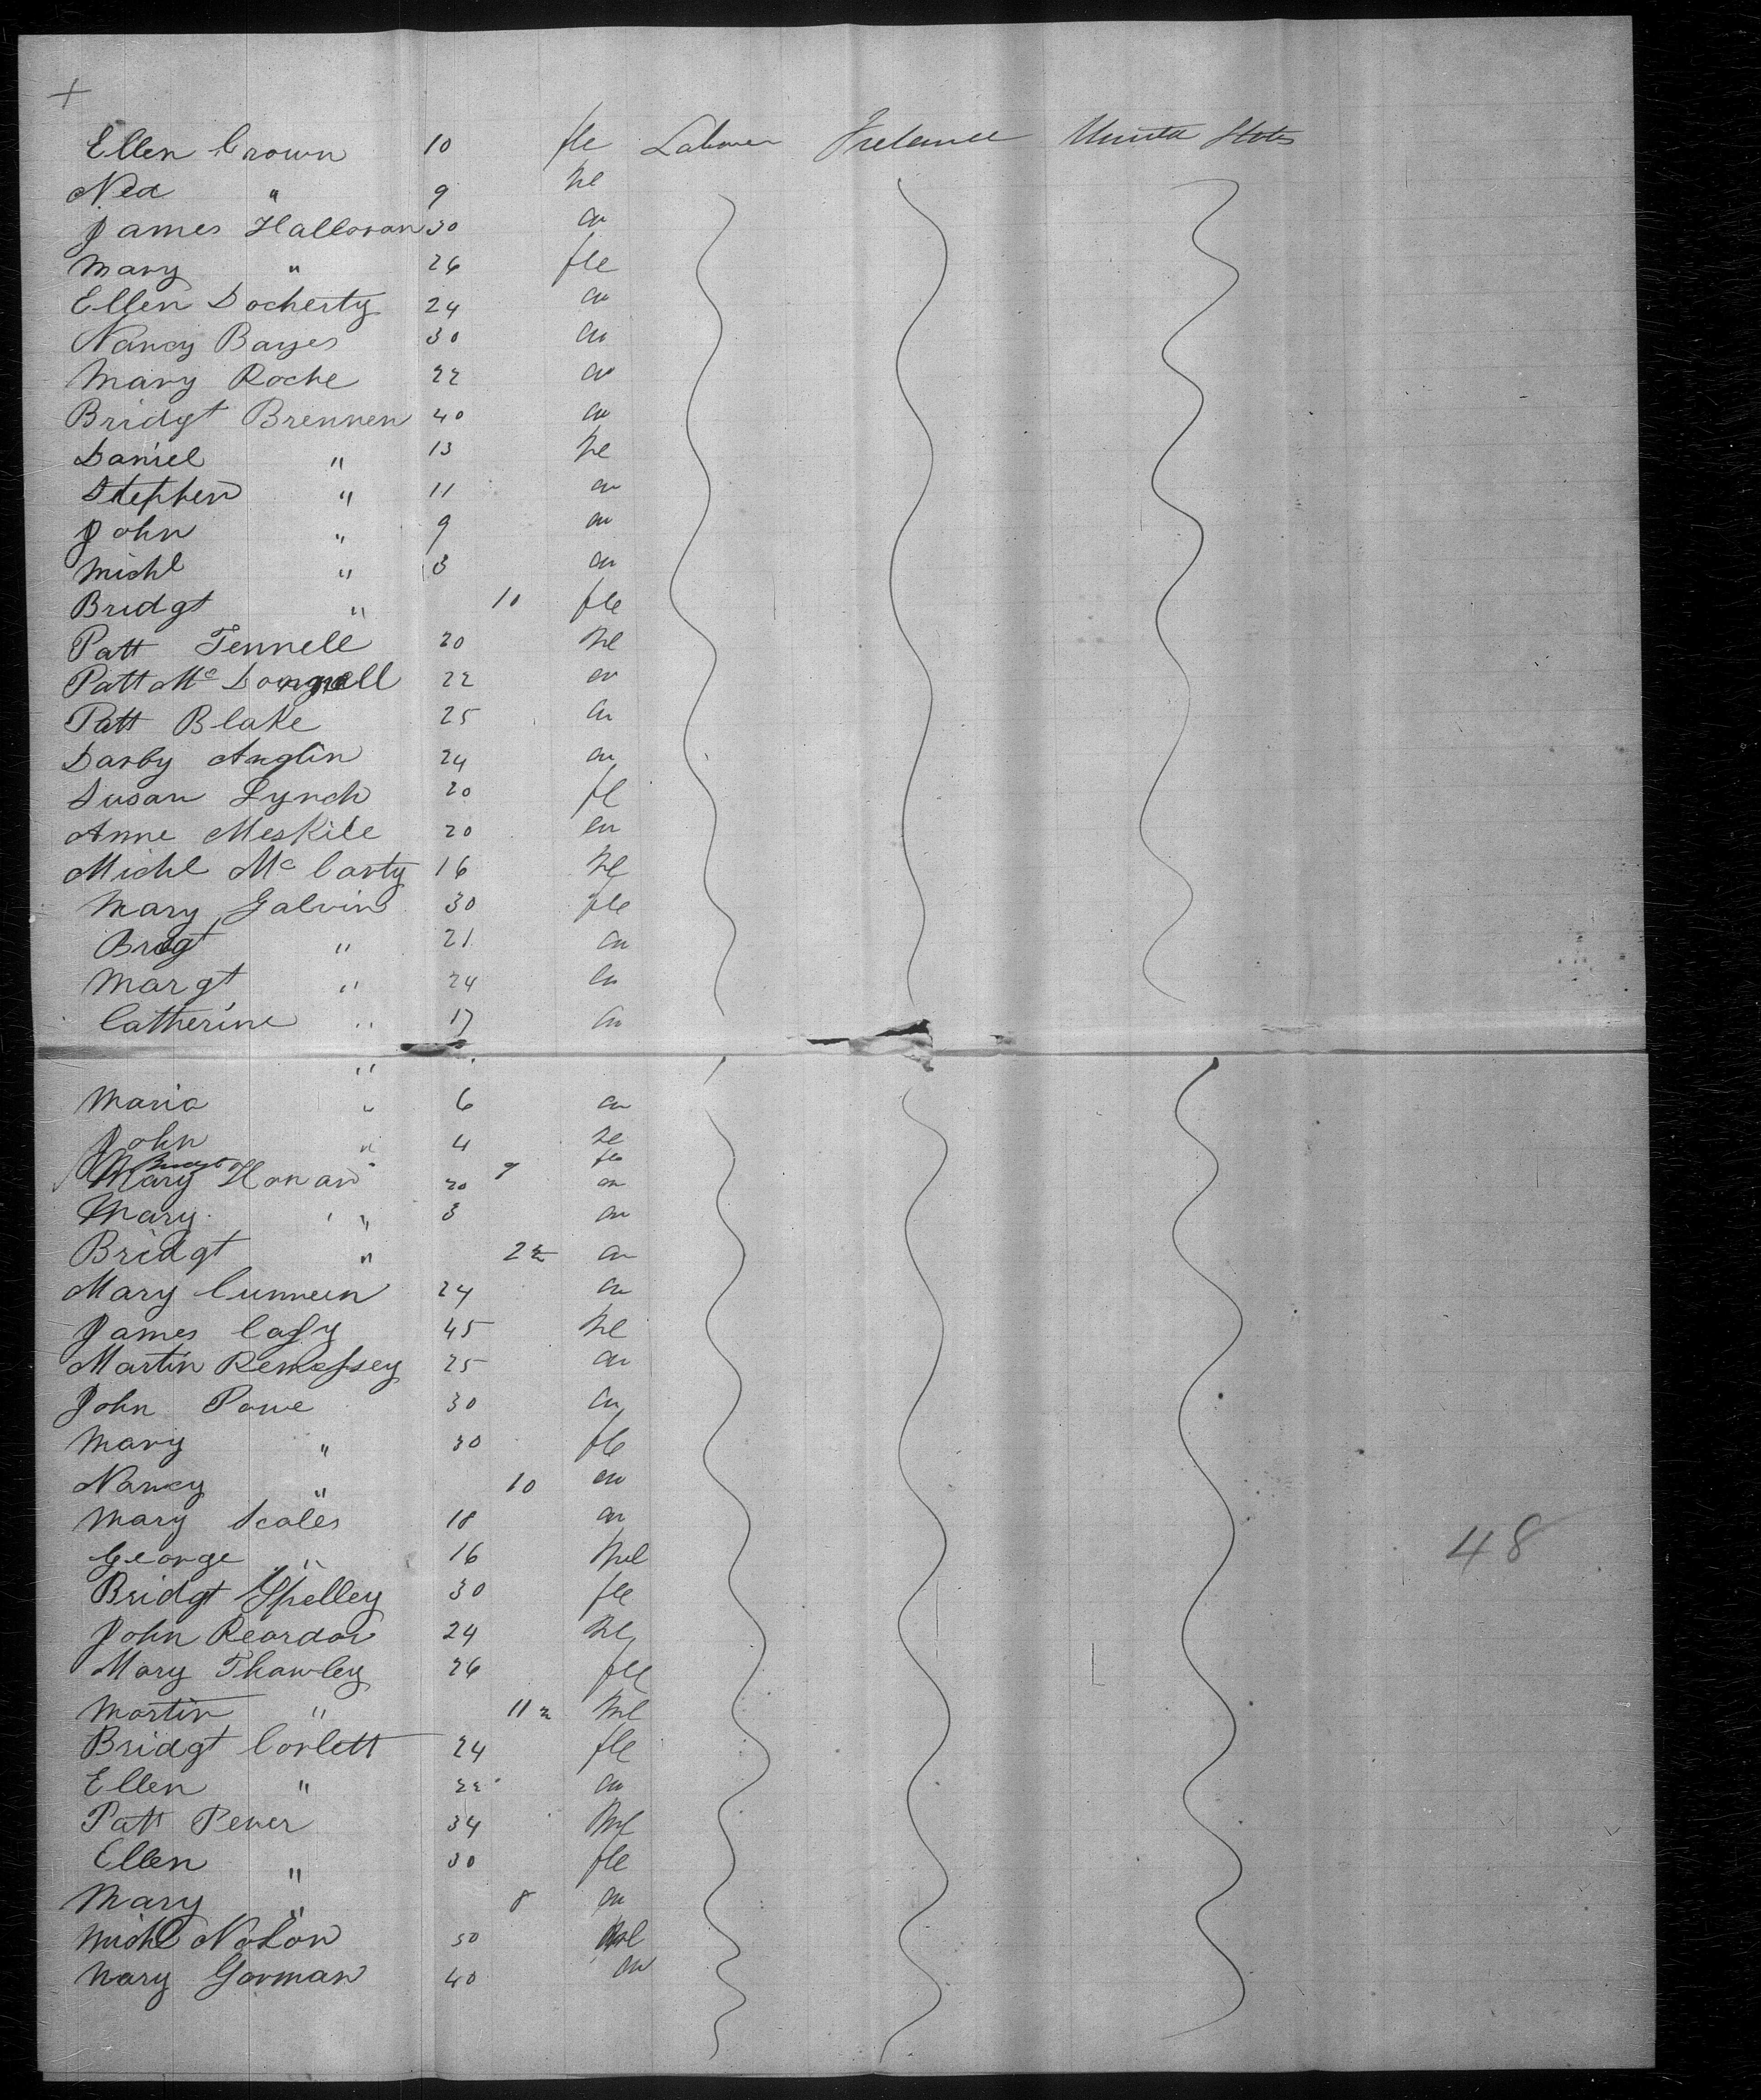 +
Ellen Crown 10 fle Labourer Ireland United States
Ned " 9 Ml
James Halloran 30 au
Mary " 26 fle
Ellen Docherty 24 au
Nancy Bayes 30 au
Mary Roche 22 au
Bridgt Brennen 40 au
Daniel " 13 Ml
Stephen " 11 au
John " 9 au
Michl " 3 au
Bridgt " 10 fle
Patt Fennell 20 Ml
Patt Mc 22 au
Patt Blake 25 au
Darby Anglin 24 au
Susan Lynch 20 fl
Anne Meskile 20 au
Michl Mc Carty 16 Ml
Mary Galvin 30 fle
Bridgt " 21 au
Margt " 24 au
Catherine " 17 au
"
Maria " 6 au
John " 4 Ml
Bridgt " 9 fle
Mary Honan 20 au
Mary " 3 au
Bridgt " 2 au
Mary Cunneen 24 au
James 45 Ml
Martin 25 au
John Powe 30 au
Mary " 30 fle
Nancy " 10 au
Mary Scales 18 au
George " 16 Ml
Bridgt Spelley 30 fle
John Reardon 24 Ml
Mary Thawley 26 fle
Martin " 11 Ml
Bridgt Corlett 24 fle
Ellen " 22 au
Patt Pewer 34 Ml
Ellen " 30 fle
Mary " 8 au
Michl Nolon 50 Ml
Mary Gorman 40 au
48